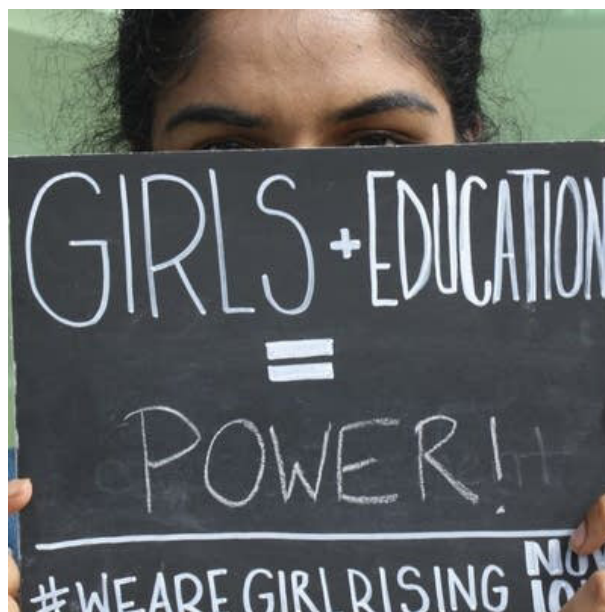 GIRLS + EDUCATION
=
POWER!
#WEAREGIRLRISING NOW